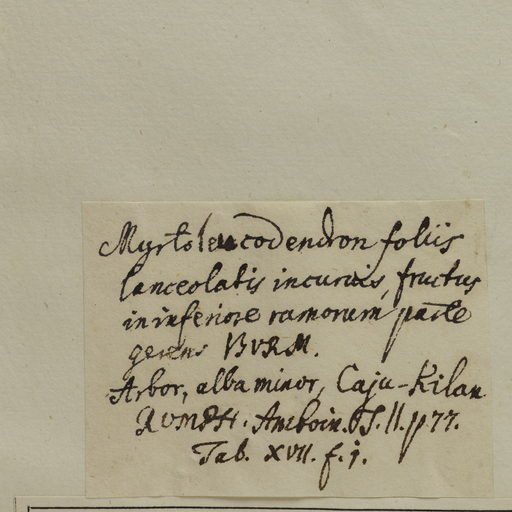 Myrtoleucodendron foliis
lanceolatis incurvis, fructus
in inferiore ramorum parte
gerens BURM.
Arbor, alba minor, Caju-Kilan
RUMPH. Amboin. T. II. p 77.
Tab. XVII. f. 1.